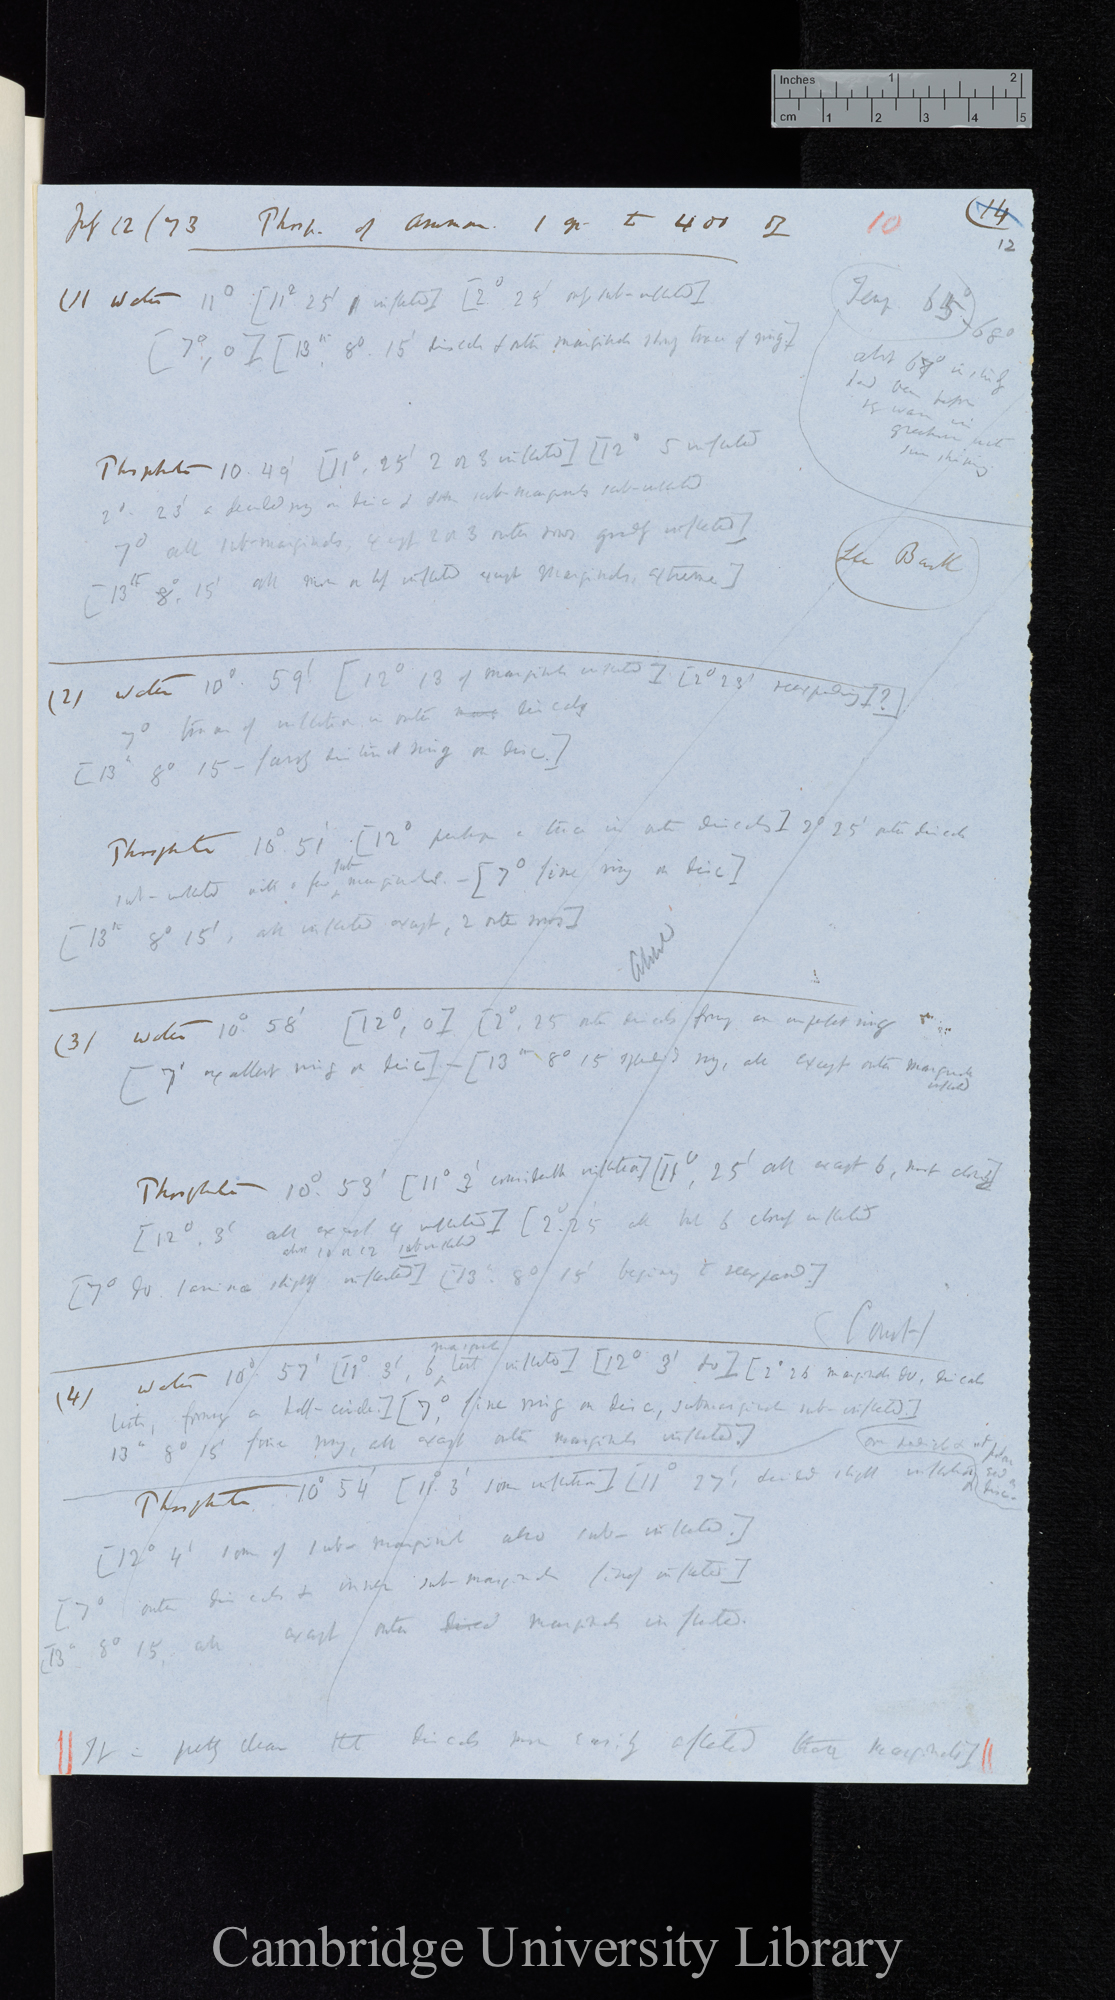 Inches 1 2
cm 1 2 3 4 5
July 12 /73 Phosp. of Ammon. 1 gr. to 400 oz
10
14
12
(1) Water 11° [11° 25' inflected] [2° 25' sub-inflected]
[7°, 0] [13th, 8° 15' discals & outer marginals strong trace of ring]
Temp 65°
68°
Phosphate 10. 49' [11°, 25' 2 or 3 inflected] [12° 5 inflected
2° 23' a decided ring on disc & some sub-marginals sub-inflected
7° all sub-marginals, except 2 or 3 outer rows greatly inflected]
[13th 8°, 15' all more or less inflected except marginals, extreme]
See Back
(2) Water 10° 59' [12° 13 of marginals inflected] [2° 23' reexpanding]?]
7° trace of inflection in outer discals
[13th 8° 15 – fairly distinct ring on disc.]
Phosphate 10° 51' [12° perhaps a trace in outer discals] 2° 25' outer discals
sub-inflected with a few sub marginals. – [7° fine ring on disc]
[13th 8° 15', all inflected except, 2 outer rows]
(3) Water 10° 58' [12°, 0] [2°, 25 outer discals forming an imperfect ring
[7' excellent ring on disc] – [13th 8° 15 splendid ring, all except outer marginals
inflected
Phosphate 10° 53' [11° 3' considerable inflection] [11°, 25' all except 6, most closely]
[12°. 3' all except 4 inflected] [2° 25 all but 6 closely inflected
also 10 or 12 sub-inflected
[7° do. lamina slightly inflected] [13th 8° 15' beginning to reexpand]
(4) Water 10° 57' [11° 3', 6 marginal tent inflected] [12° 3' do] [2° 26 marginals do, discals
forming a half-circle] [7°, fine ring on disc, submarginals sub-inflected]
13th 8° 15' fine ring, all except outer marginals inflected]
Phosphate 10° 54' [11° 3' some inflection] [11° 27', decided slight inflection
[12° 4' some of sub-marginal also sub-inflected.]
[7° outer discals & inner sub-marginals inflected]
[13th 8° 15, all except outer discal marginals inflected.
It is pretty clear that discals more easily affected than marginals]
Cambridge University Library